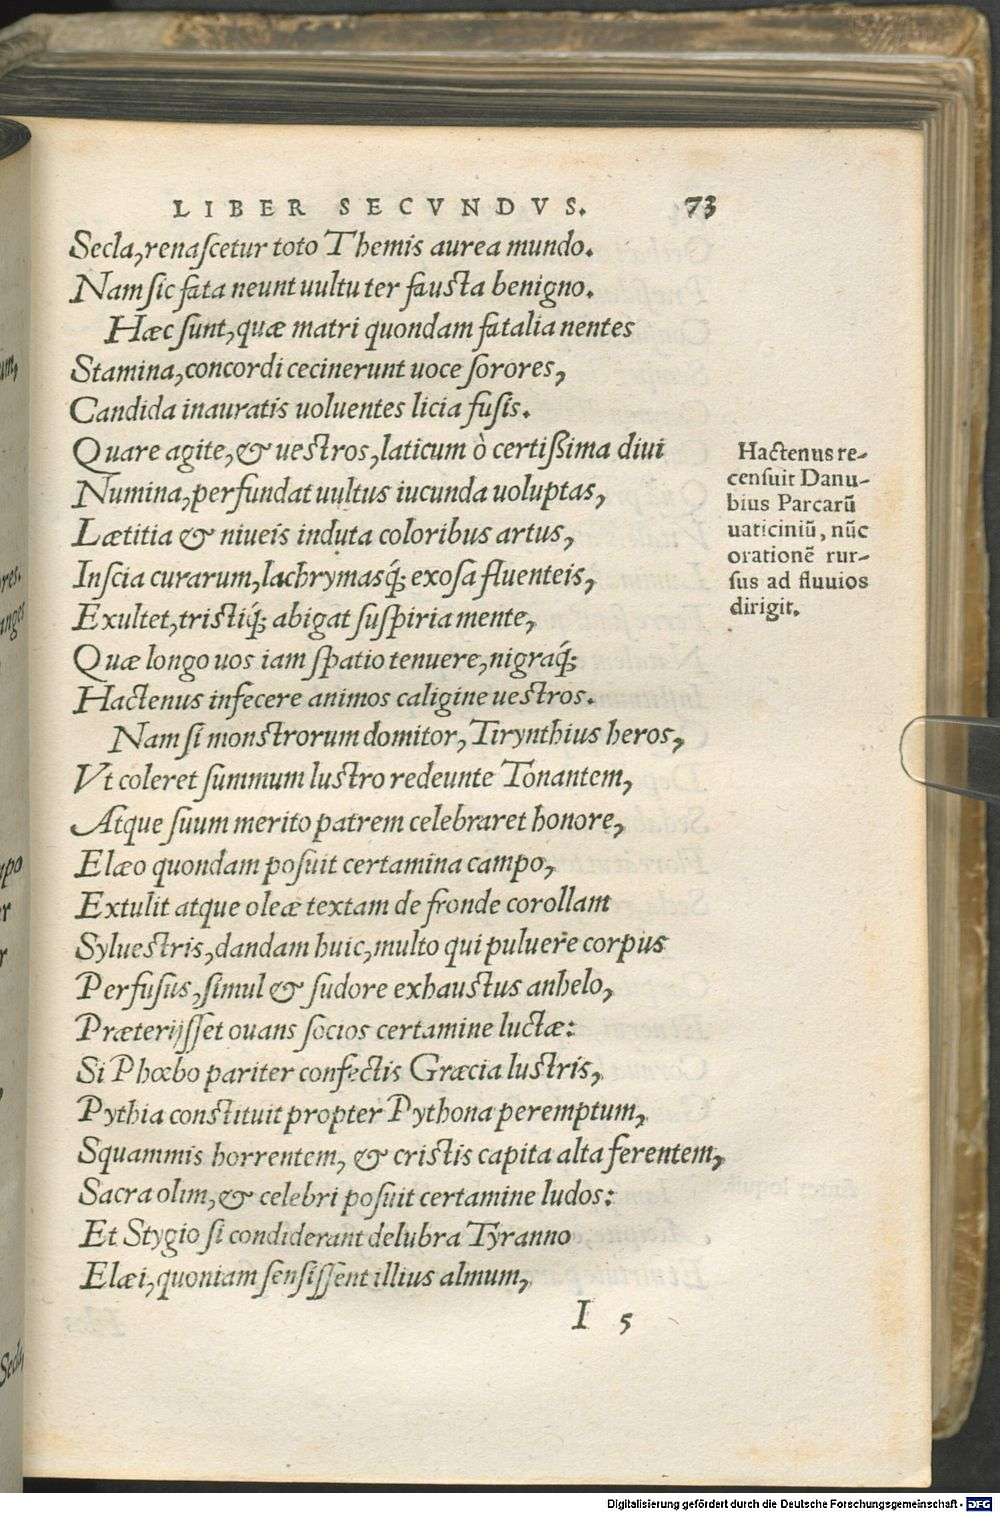 LIBER SECVNDVS. 73
Secla, renascetur toto Themis aurea mundo.
Nam sic fata neunt uultu ter fausta benigno.
Hæc sunt, quæ matri quondam fatalia nentes
Stamina, concordi cecinerunt uoce sorores,
Candida inauratis uoluentes licia fusis.
Quare agite, & uestros, laticum ò certißima diui
Numina, perfundat uultus iucunda uoluptas,
Lætitia & niueis induta coloribus artus,
Inscia curarum, lachrymasq́; exosa fluenteis,
Exultet, tristiq́; abigat suspiria mente,
Quæ longo uos iam spatio tenuere, nigraq́;
Hactenus infecere animos caligine uestros.
Nam si monstrorum domitor, Tirynthius heros,
Vt coleret summum lustro redeunte Tonantem,
Atque suum merito patrem celebraret honore,
Elæo quondam posuit certamina campo,
Extulit atque oleæ textam de fronde corollam
Syluestris, dandam huic, multo qui puluere corpus
Perfusus, simul & sudore exhaustus anhelo,
Præterijsset ouans socios certamine luctæ:
Si Phœbo pariter confectis Græcia lustris,
Pythia constituit propter Pythona peremptum,
Squammis horrentem, & cristis capita alta ferentem,
Sacra olim, & celebri posuit certamine ludos:
Et Stygio si condiderant delubra Tyranno
Elæi, quoniam sensissent illius almum,
I 5
Hactenus re-
censuit Danu-
bius Parcarũ
uaticiniũ, nũc
orationẽ rur-
sus ad fluuios
dirigit.
Digitalisierung gefördert durch die Deutsche Forschungsgemeinschaft - DFG